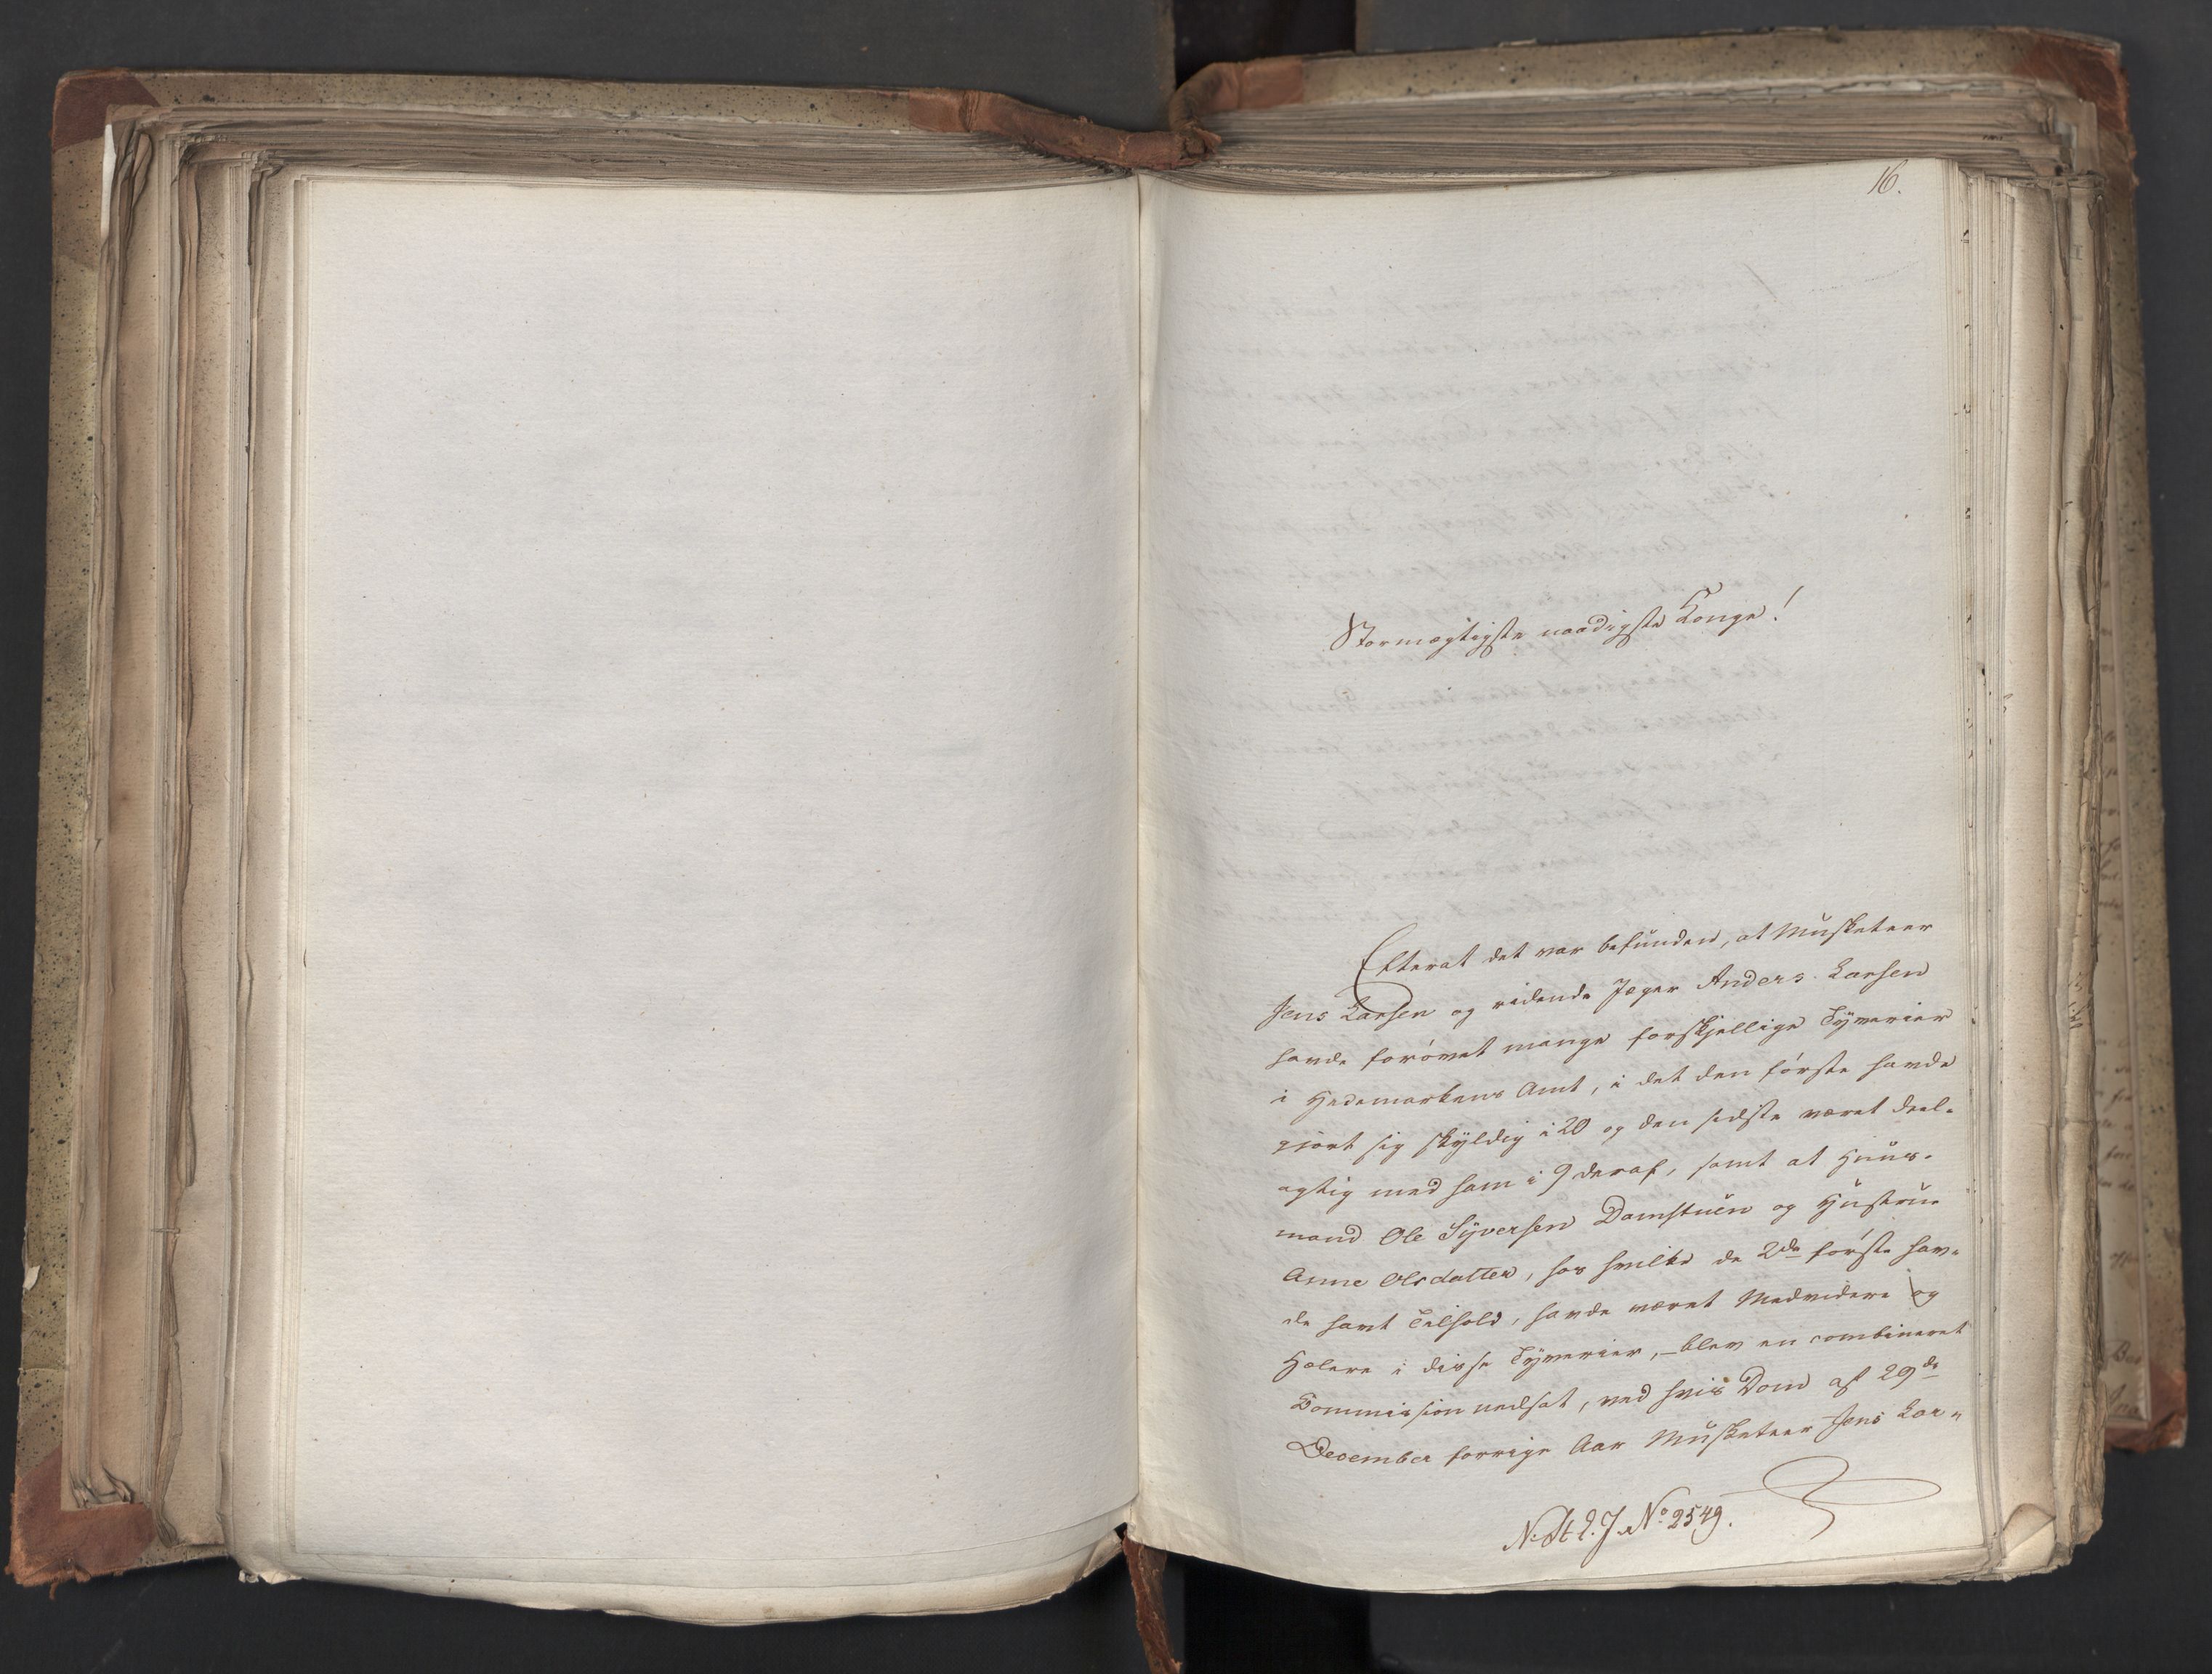 16.
Stormægtigste naadigste Konge!
Efterat det var befunden, at Musketeer
Jens Larsen og ridende Jæger Anders Larsen
havde forövet mange forskjellige Tyverier
i Hedemarkens Amt, i det den förste havde
gjort sig skyldig i 20 og den sidste været deel-
agtig med ham i 9 deraf, samt at Huus-
mand Ole Syversen Damstuen og Hustrue
Anne Olsdatter, hos hvilke de 2de förste hav-
de havt Tilhold, havde været Medvidere og
Hælere i disse Tyverier, - blev en combineret
Commission nedsat, ved hvis Dom af 29de
December forrige Aar Musketeer Jens Lar-
N. St. E. J. No 2549.